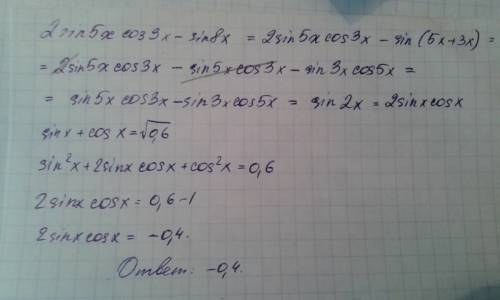 2sin5x cos3x - sin8x = 2sin5x cos3x - sin(5x+3x) =
= 2sin5x cos3x - sin5x cos3x - sin3x cos5x =
= sin5x cos3x - sin3x cos5x = sin2x = 2sinxcosx
sinx + cosx = √0,6
sin²x + 2sinx cosx + cos²x = 0,6
2sinx cosx = 0,6 - 1
2sinxcosx = -0,4.
Ответ: -0,4.